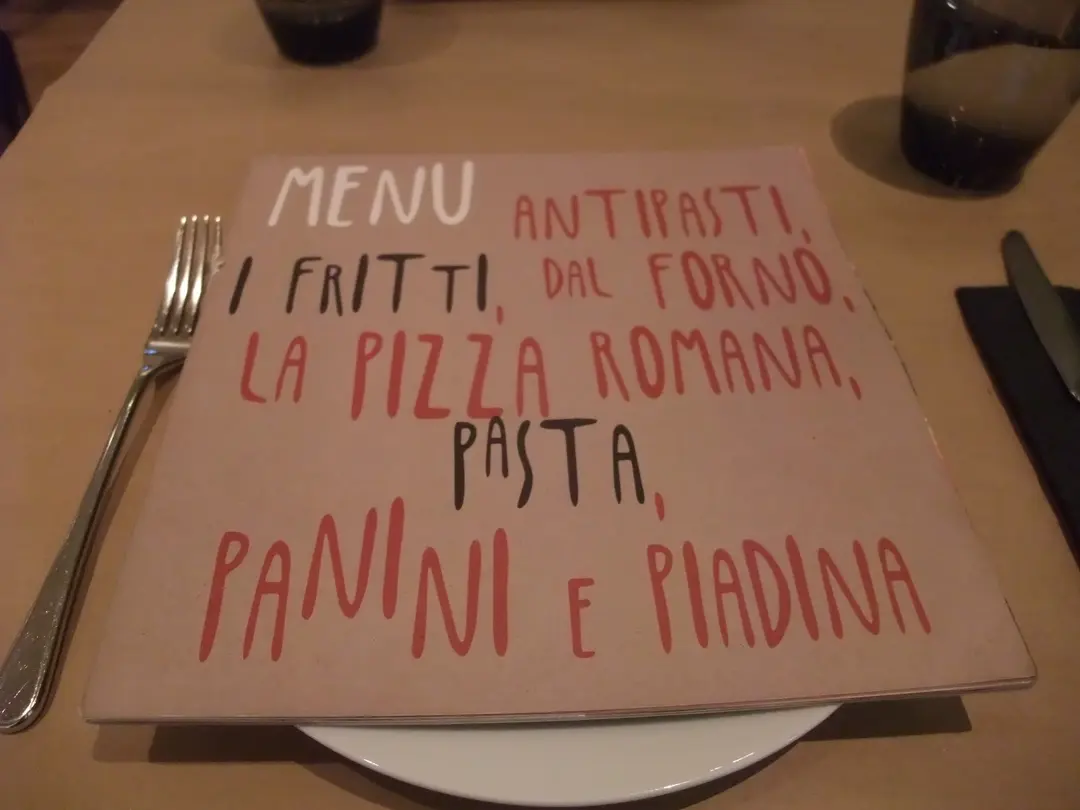 MENU ANTIPASTI,
I FRITTI, DAL FORNO,
LA PIZZA ROMANA,
PASTA,
PANINI E PIADINA